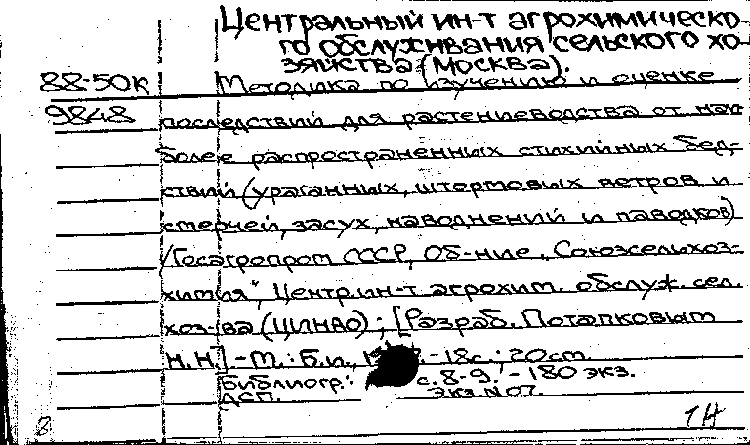 Центральный ин-т агрохимическо-
го обслуживания сельского хо-
зяйства (Москва).
88-50к Методика по изучению и оценке
9848 последствий для растениеводства от наи-
более распространенных стихийных бед-
ствий (ураганных, штормовых ветров и
смерчей, засух, наводнений и паводков)
/Госагропром СССР, Об-ние „Союзсельхоз-
химия", Центр. ин-т агрохим. обслуж. сел.
хоз-ва (ЦИНАО); [Разраб. Потапковым
Н.Н.] - М.: Б.и., - 18с.; 20см.
Библиогр.: с. 8-9. - 180 экз.
ДСП. Экз. N 07.
8. 1Н